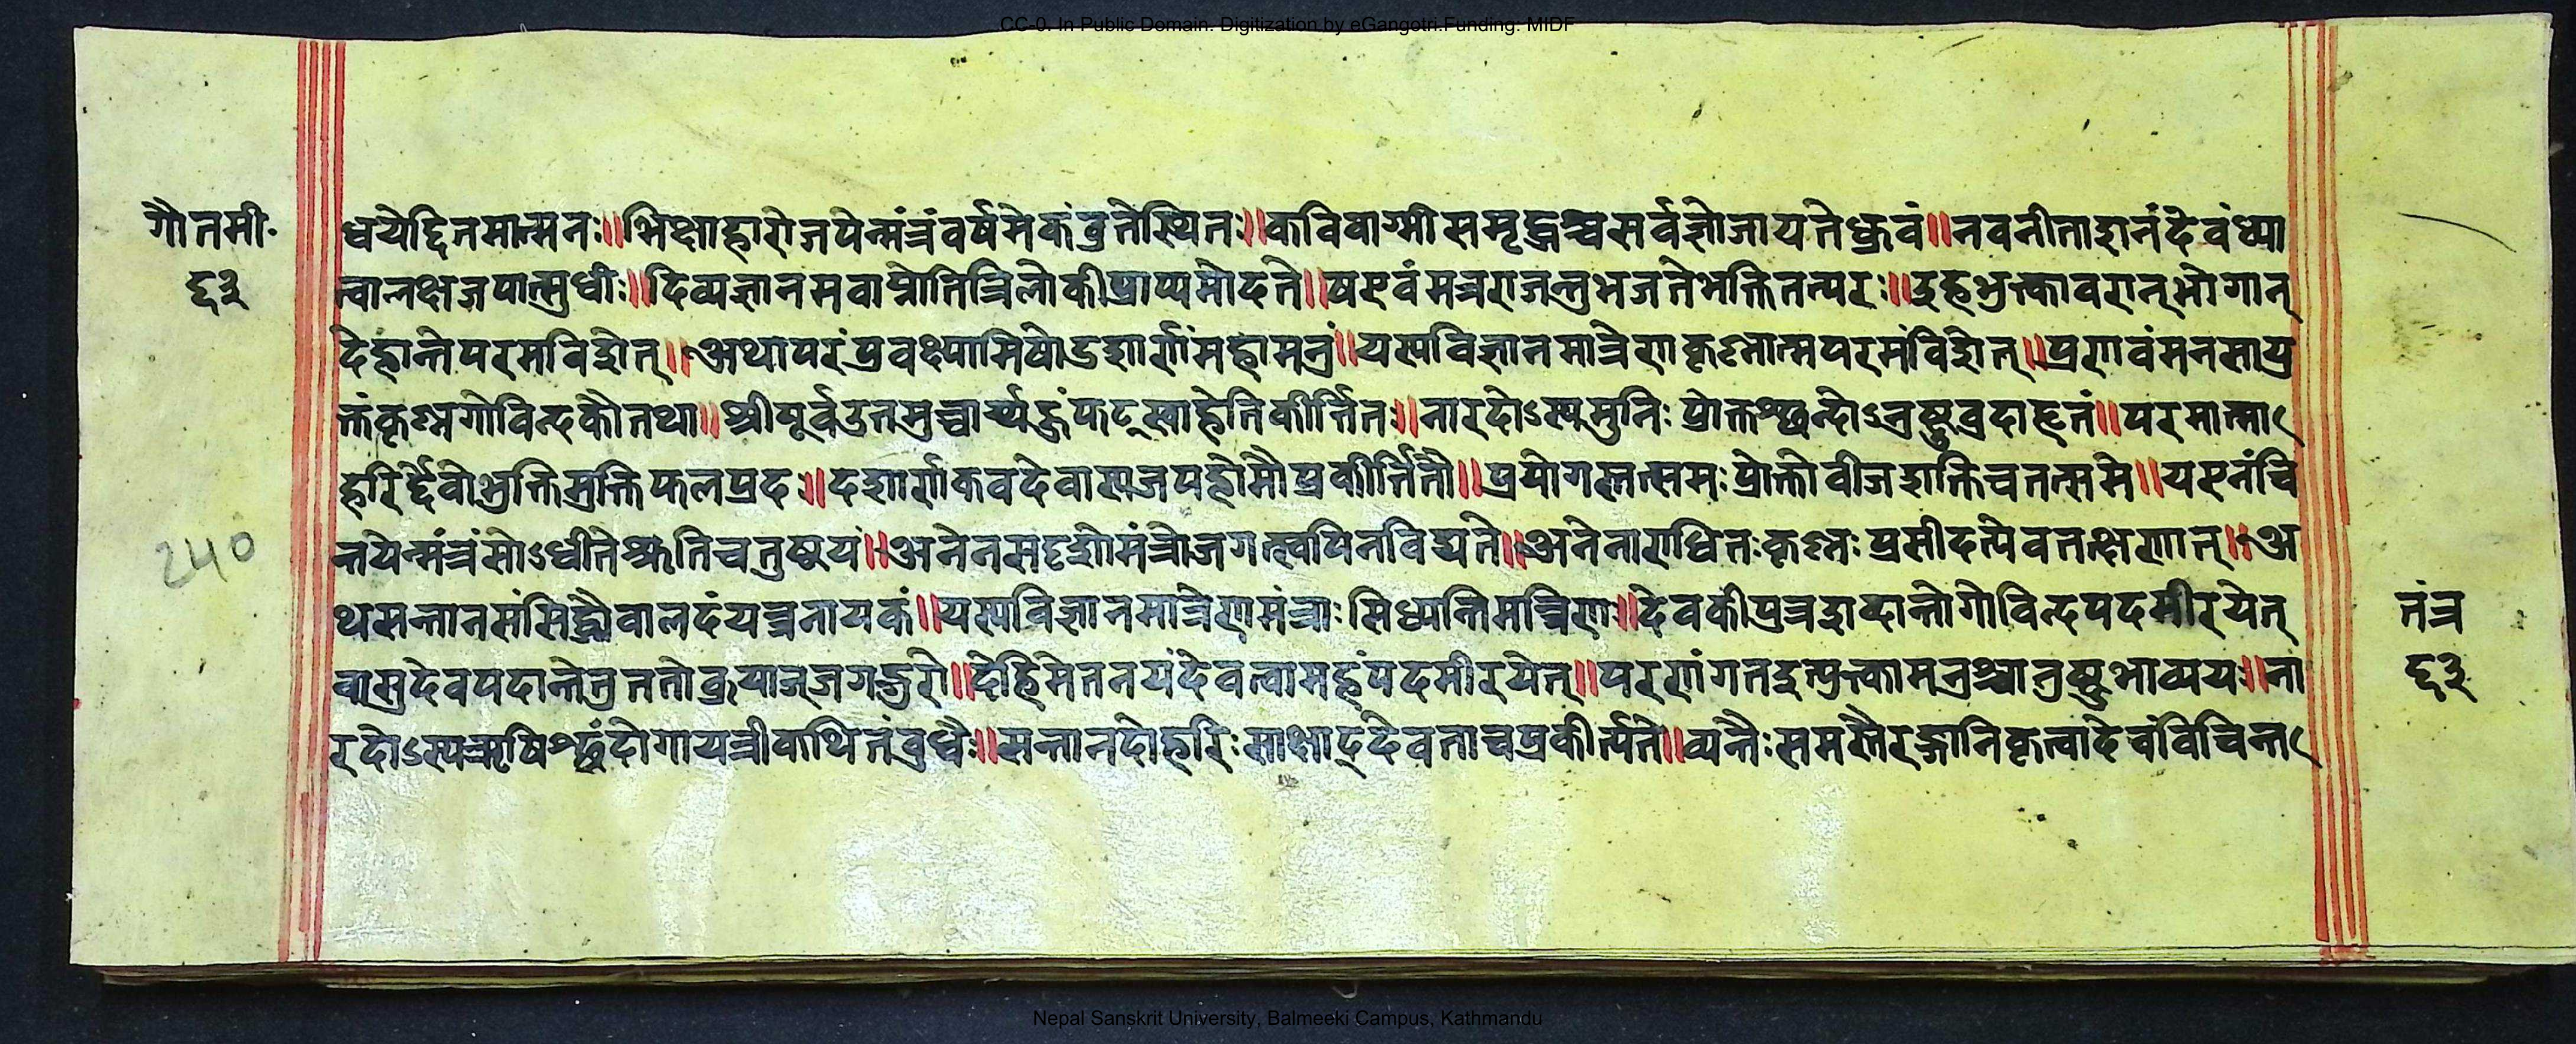 CC-0. In Public Domain. Digitization by eGangotri.Funding: MIDF
गौतमी॰
६३
ध्वयेद्दिनमात्मनः॥भिक्षाहारोजपेन्मंत्रंवर्षमेकंव्रतेस्थितः॥कविवाग्मीसमृद्धश्चसर्वज्ञोजायतेध्रुवं॥नवनीताशनंदेवंध्या
त्वालक्षजपात्सुधीः॥दिव्यज्ञानमवाप्नोतित्रिलोकीप्राप्यमोदते॥षएवंमन्त्रराजन्तुभजतेभक्तितत्परः॥इहभुक्त्कावरान्भोगान्
देहान्तेपरमविशेत्॥अथापरंप्रवक्ष्यामिषोडशार्णंमहामन्त्रं॥यस्यविज्ञानमात्रेणकृष्णात्मपरमंविशेत्॥प्रणवंमनसाप्र
क्तंकृष्णगोविन्दकौतथा॥श्रीपूर्वउतमुच्चार्य्यहुंफट्स्वाहेतिकीर्त्तितः॥नारदोऽस्यमुनिः प्रोक्तश्छन्दोऽनुष्टुवुदाहृतं॥परमात्मा
हरिर्द्देवोभुक्तिमुक्तिफलप्रदः॥दशार्णकवदेवास्यजपहोमौप्रकीर्त्तितौ॥प्रयोगस्तत्समः प्रोक्तोवीजशक्तिचतत्समे॥यएनंचि
न्तयेन्मंत्रंसोऽधीतेश्रुतिचतुष्टयं॥अनेनसदृशोमंत्रोजगत्स्वपिनविद्यते॥अनेनाराधितःकृष्णः प्रसीदत्येवतत्क्षणात्॥अ
थसन्तानसंसिद्ध्यैवालदंयन्त्रनायकं॥यस्यविज्ञानमात्रेणमंत्राः सिध्यन्तिमान्त्रिणः॥देवकीपुत्रशब्दान्तोगोविन्दपदमीरयेत्
वासुदेवपदान्तेनुततोब्रूयाज्जगद्गुरो॥देहिमेतनयंदेवत्वामहंपदमीरयेत्॥परणंगतइत्युक्त्कामन्त्रश्चानुष्टुभाव्ययः॥ना
रदोऽस्यऋषिश्छंदोगायत्रीकथितंवुधैः॥सन्तानदोहरिः साक्षाद्देवताचप्रकीर्त्यते॥व्यस्तैः समस्तैरङ्गानिकृत्वादेवंविचिन्त
240
तंत्र
६३
Nepal Sanskrit University, Balmeeki Campus, Kathmandu